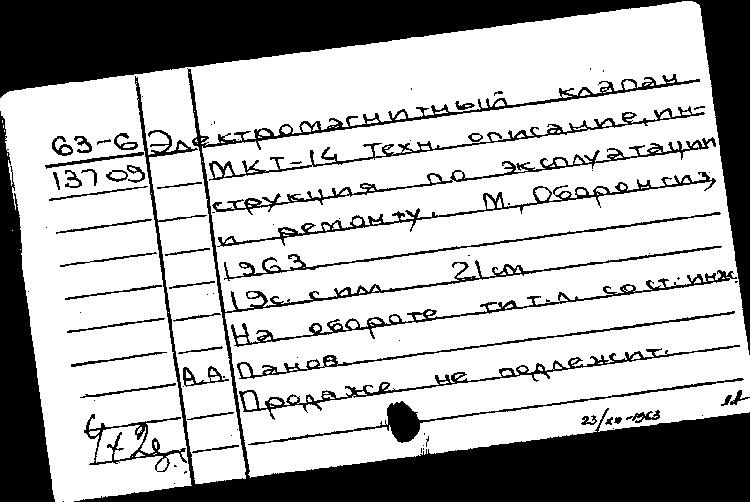 63-6 Электромагнитный клапан
13709 МКТ-14 Техн. описание, ин-
струкция по эксплуатации
и ремонту. М., Оборонгиз,
1963
19с. с илл. 21 см
На обороте тит.л. сост.: инж.
А.А. Панов.
Продаже не подлежит.
23/XII-1963